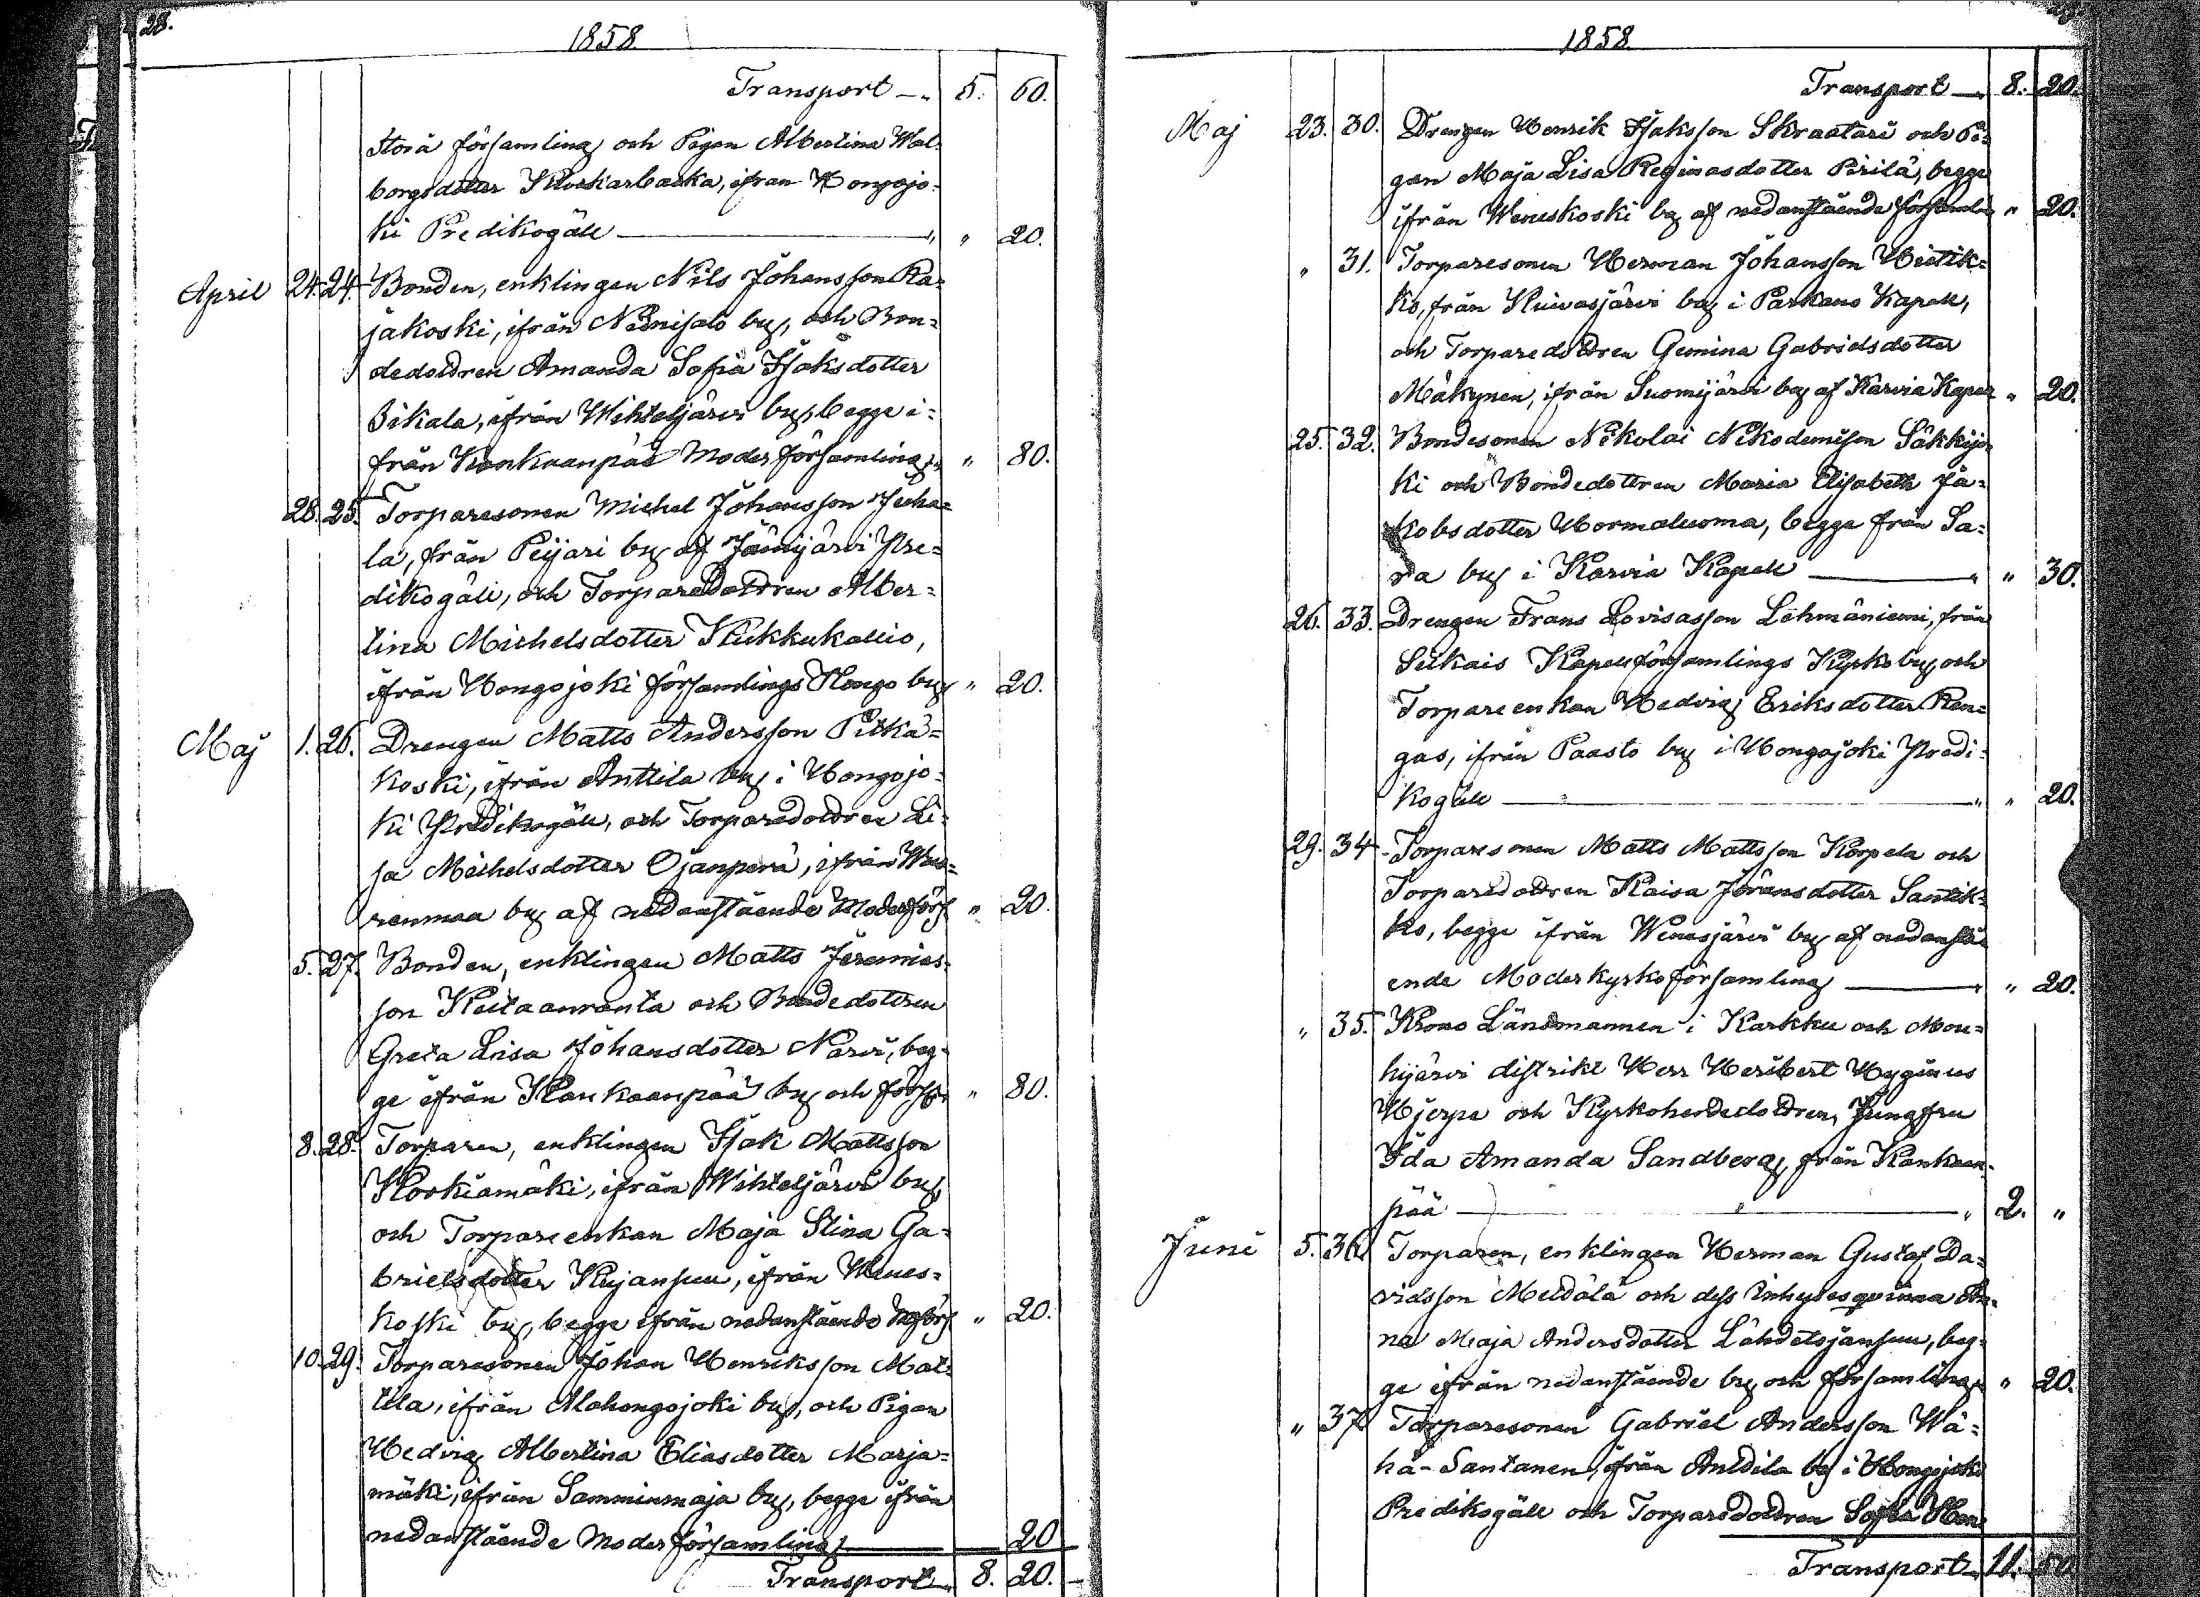 28.
1858
Transport —„ 5. 60.
storå församling och Pigan Albertina Wal-
borgsdotter Kluskarbacka, ifrån Hongojo-
ki Predikogäll — „ „ 20.
April 24. 24. Bonden, enklingen Nils Johansson Ra-
jakoski, ifrån Niinisalo by, och Bon=
dedottren Amanda Sofia Isaksdotter
Sikala, ifrån Wihteljärvi by, begge i-
från Kankaanpää Moderförsamling „ „ 80.
28. 25. Torparesonen Michel Johansson Juha=
la, från Peijari by af Jämijärvi Pre=
dikogäll, och Torparedottren Alber=
tina Michelsdotter Kukkukallio,
ifrån Hongojoki församlings Hongo by „ 20.
Maj 1. 26. Drengen Matts Andersson Pitkä=
koski, ifrån Anttila by i Hongojo-
ki Predikogäll, och Torparedottren Li-
sa Michelsdotter Ojanperä, ifrån Wen-
renmaa by af nedanstående Moderförs „ 20.
5. 27. Bonden, enklingen Matts Jeremias-
son Keitaanranta och Bondedottren
Greta Lisa Johansdotter Närvi, beg-
ge ifrån Kankaanpää by och förs. „ 80.
8. 28. Torparen, enklingen Isak Mattsson
Korkiamäki, ifrån Wihteljärvi by,
och Torpareenkan Maja Stina Ga-
brielsdotter Kujansuu, ifrån Wenes-
koski by, begge ifrån nedanstående Mförs „ 20.
10. 29. Torparesonen Johan Henriksson Mat-
tila, ifrån Alahongojoki by, och Pigan
Hedvig Albertina Eliasdotter Marja-
mäki, ifrån Samminmaja by, begge ifrån
nedanstående Moderförsamling — 20
Transport „ 8. 20.
1858
Transport — 8. 20.
Maj 23. 30. Drengen Henrik Isaksson Skraatari och Pi-
gan Maja Lisa Reginasdotter Pirilä, begge
ifrån Weneskoski by af nedanstående församlin „ 20.
„ 31. Torparesonen Herman Johansson Hietik=
ko, från Kuivasjärvi by i Parkano Kapell,
och Torparedottren Gemina Gabrielsdotter
Mäkynen, ifrån Suomijärvi by af Karvia Kapell „ 20.
25. 32. Bondesonen Nikolai Nikodemison Säkkijo-
ki och Bondedottren Maria Elisabeth Ja-
kobsdotter Hormaluoma, begge från Sa-
ra by i Karvia Kapell — „ „ 30.
26. 33. Drengen Frans Lovisasson Lehmäniemi, från
Siikais Kapellförsamlings Kyrkoby, och
Torpareenkan Hedvig Eriksdotter Ren=
gas, ifrån Paasto by i Hongojoki Predi-
kogäll — „ „ 20.
29. 34. Torparesonen Matts Mattsson Korpela och
Torparedottren Kaisa Jöransdotter Santik-
ko, begge ifrån Wenesjärvi by af nedanstå-
ende Moderkyrkoförsamling — „ „ 20.
„ 35. Krono Länsmannen i Karkku och Mou=
hijärvi distrikt Herr Heribert Hyginus
Hjerpe och Kyrkoherdedottren, Jungfru
Ida Amanda Sandberg, från Kankaan-
pää — „ — „ 2. „
Juni 5. 36. Torparen, enklingen Herman Gustaf Da-
vidsson Meidälä och dess Inhysesqvinna An-
na Maja Andersdotter Lähdetojansuu, beg-
ge ifrån nedanstående by och församling „ 20.
„ 37. Torparesonen Gabriel Andersson Wä-
hä-Santanen, ifrån Anttila by i Hongojoki
Predikogäll och Torparedottren Sofia Hen-
Transport „ 11. 50.